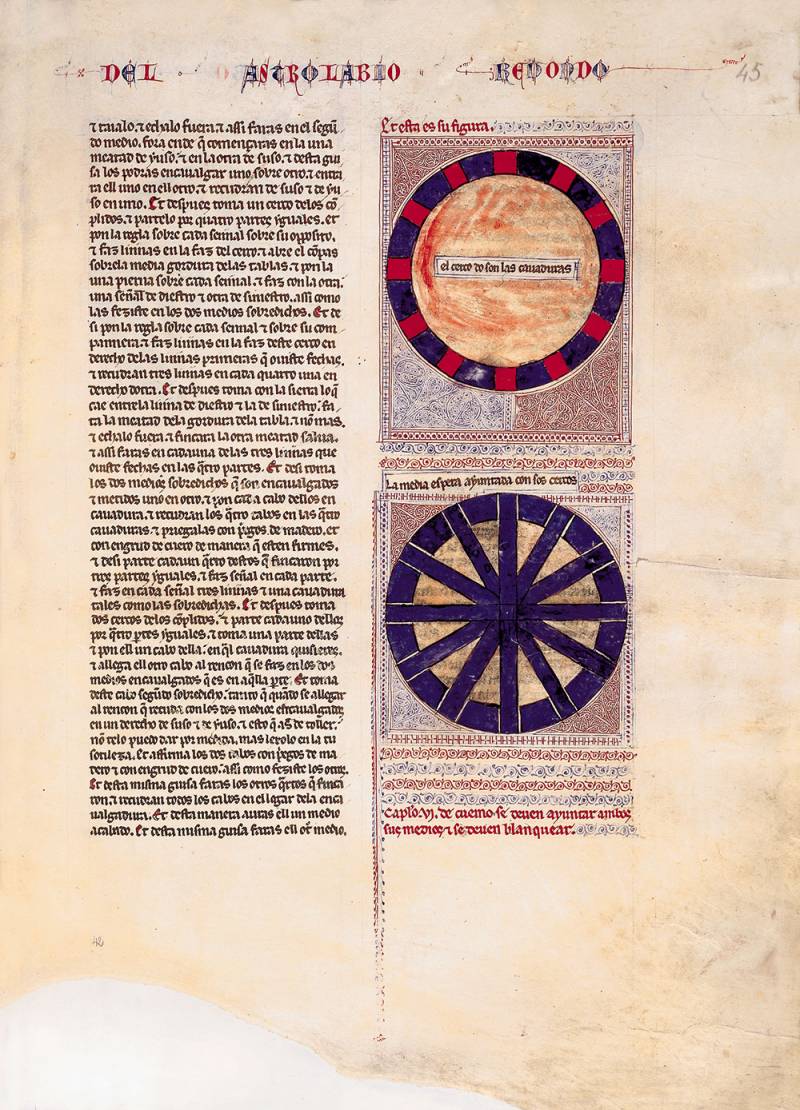 DEL ASTROLABIO REDONDO 45
⁊ taialo. ⁊ echalo fuera. ⁊ assi faras en el segũ
do medio. fora ende q̃ començaras en la una
meatad de yuso. ⁊ en la otra de suso. ⁊ desta gui
sa los podras encaualgar uno sobre otro. ⁊ entra
ra ell uno en ell otro. ⁊ recudran de suso ⁊ de yu
so en uno. Et despues toma un cerco delos cõ
plidos. ⁊ partelo por quatro partes yguales. et
pon la regla sobre cada sennal sobre su opposito.
⁊ faz linnas en la faz del cerco. ⁊ abre el cõpas
sobre la media gordura delas tablas. ⁊ pon la
una pierna sobre cada sennal. ⁊ faz con la otra.
una señal de diestro ⁊ otra de siniestro. assi como
las feziste en los dos medios sobredichos. Et de
si pon la regla sobre cada sennal ⁊ sobre su com
pannera. ⁊ faz linnas en la faz deste cerco en
derecho de las linnas primeras q̃ ouiste fechas.
⁊ recudran tres linnas en cada quarto una en
derecho dotra. Et despues toma con la sierra lo q̃
cae entre la linna de diestro ⁊ la de siniestro. fa
ta la meatad dela gordura dela tabla. ⁊ nõ mas.
⁊ echalo fuera. ⁊ fincara la otra meatad salua.
⁊ assi faras en cadauna delas tres linnas que
ouiste fechas en las q̃tro partes. Et desi toma
los dos medios sobredichos q̃ son encaualgados
⁊ metidos uno en otro. ⁊ pon cada cabo dellos en
cauadura. ⁊ recudran los q̃tro cabos en las q̃tro
cauaduras. ⁊ priegalas con p̃gos de madero. et
con engrud de cuero de manera q̃ esten firmes.
⁊ desi parte cadaun q̃rto destos q̃ fincaron por
tres partes yguales. ⁊ faz señal en cada parte.
⁊ faz en cada señal tres linnas ⁊ una cauadura
tales como las sobredichas. Et despues toma
dos cercos delos cõplidos. ⁊ parte cadauno dellos
por q̃tro p̃tes yguales. ⁊ toma una parte dellas
⁊ pon ell un cabo della. en q̃l cauadura quisieres.
⁊ allega ell otro cabo al rencon que se faz en los dos
medios encaualgados q̃ es en aq̃lla p̃te. Et toma
deste cabo segũdo sobredicho. tanto q̃ quãdo se allegar
al rencon q̃ recuda con los dos medios encaualgados
en un derecho de suso ⁊ de yuso. ⁊ esto q̃ as de toller.
nõ telo puedo dar por medida. mas lexolo en la tu
sotileza. Et affirma los dos cabos con p̃egos de ma
dero ⁊ con engrud de cuero. assi como feziste los otros.
Et desta misma guisa faras los otros q̃rtos q̃ finca
ron. ⁊ recudran todos los cabos en el logar dela enca
ualgadura. Et desta manera auras ell un medio
acabado. Et desta misma guisa faras ell ot̃ medio.
42
Et esta es su figura.
el cerco do son las cauaduras
La media espera ayuntada con sos cercos
Caplo .VI. de cuemo se deuen ayuntar ambos
sus medios ⁊ se deuen blanquear.